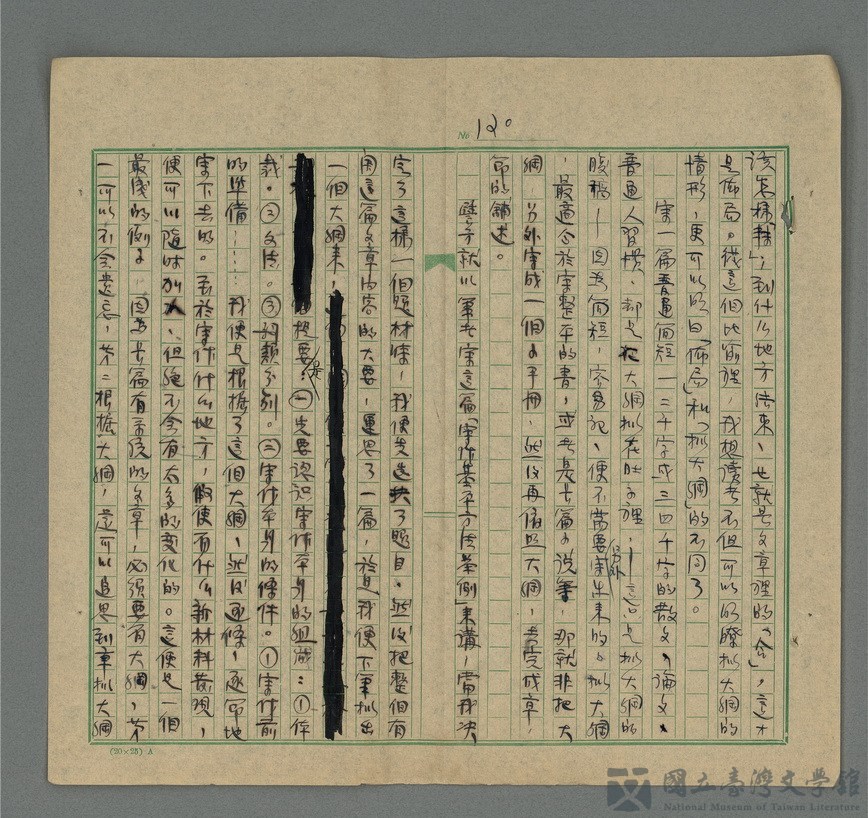 No 120
該怎樣轉」，到什么地方結束，也就是文章裡的「合」，這才
是佈局。從這個比喻裡，我想讀者不但可以明瞭擬大綱的
情形，更可以明白「佈局」和「擬大綱」的不同了。
寫一篇普通簡短一二千字或三四千字的散文、論文、
普通人習慣，却是把大綱擬在肚子裡，—這是擬大綱的
腹稿—因為簡短，容易記，便不需要另外筆出來的。擬大綱
，最適合於寫整本的書，或者是長篇小說等，那就非把大
綱，另外寫成一個小手冊，然後再依照大綱，去完成章、
節的鋪述。
譬方就以筆者寫這篇「寫作基本方法舉例」來講，當我決
定了這樣一個題材時，我便先選擇了題目。然後把整個有
關這篇文章內容的大要，運思了一篇，於是我便下筆擬出
一個大綱來，
想要是：㊀先要認識寫作本身的組織：①体
裁。②文法。③種類分別。㊁寫作本身的條件。①寫作前
的準備……我便是根據了這個大綱，然後逐條，逐節地
寫下去的。至於寫作什么地方，假使有什么新材料發現，
便可以隨時加入、但絕不会有太多的變化的。這便是一個
最淺的例子。因為長篇有系統的文章，必須要有大綱，第
一可以不会遺忘，第二根據大綱，還可以追思到章擬大綱
(20×25) A
國立臺灣文學館
National Museum of Taiwan Literature